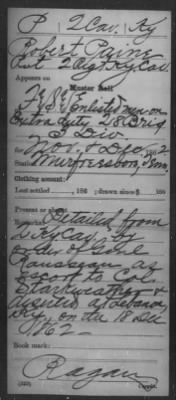 P 2 Cav. Ky
Robert Paine
Pvt 2 Reg't Ky Cav.
Appears on
Muster Roll
of Enlisted men on
Extra duty, 28 Brig
3 Div
for Nov. & Dec, 1862
Station Murfreesboro, Tenn.
Clothing account:
Last settled , 186 ; drawn since $ 100
Present or
Remarks: Detailed from
2 Ky Cav. by
order of Genl
Rousseau as
escort to Col.
Starkweather &
deserted at Lebanon,
Ky, on the 18 Dec
1862
Book mark:
Ragan
Copyist.